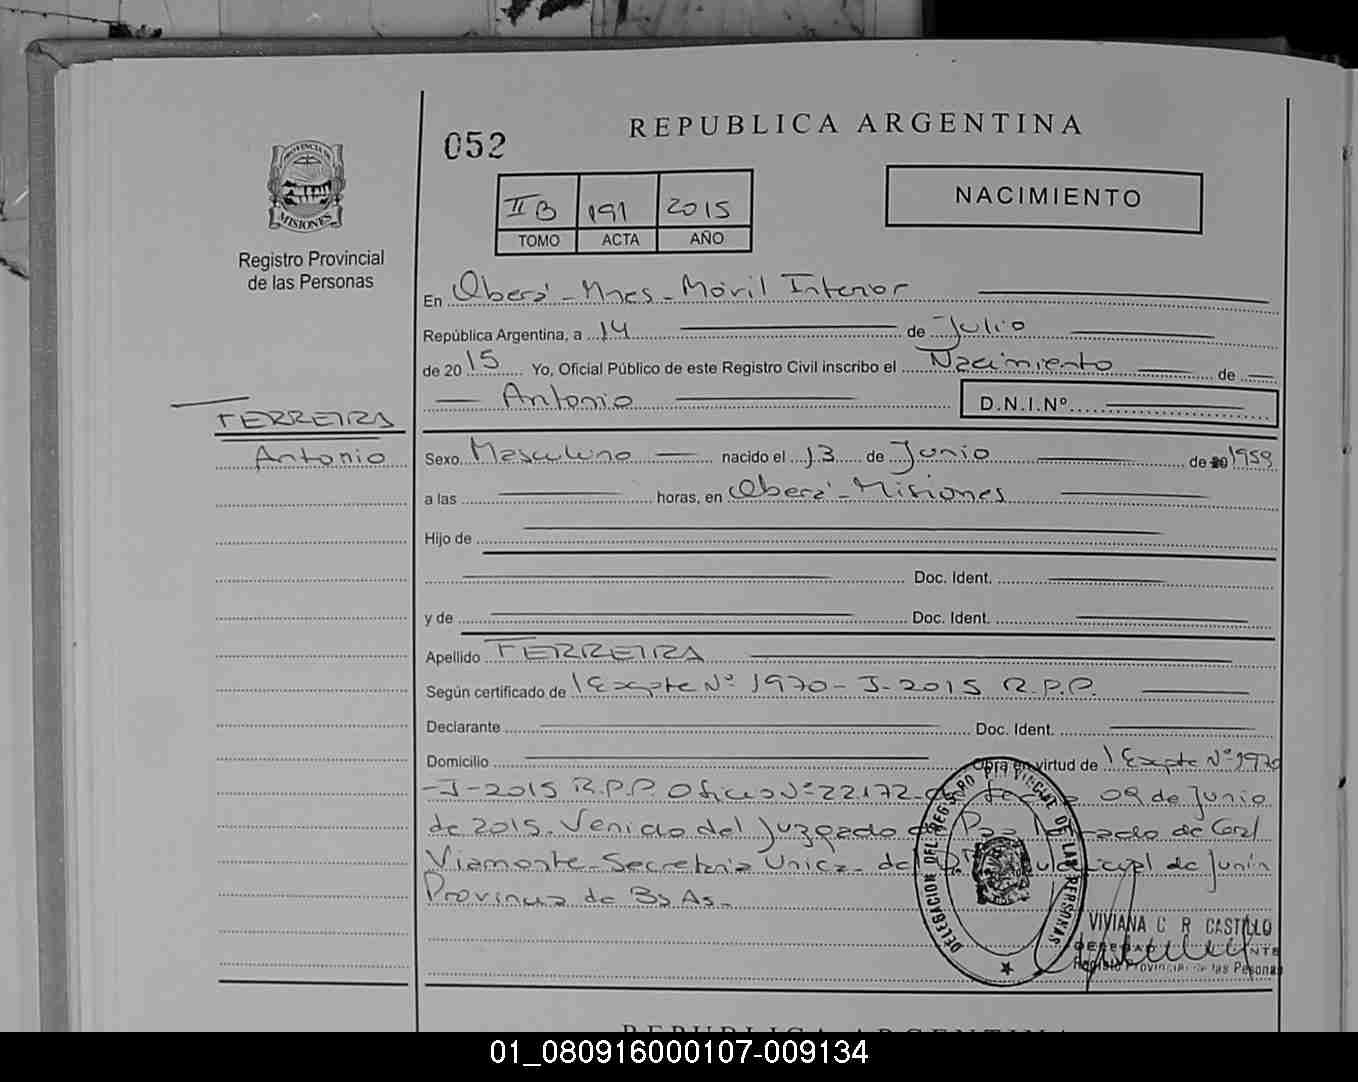 052
REPUBLICA ARGENTINA
PROVINCIA DE
MISIONES
Registro Provincial
de las Personas
II B 191 2015
TOMO ACTA AÑO
NACIMIENTO
En Oberá - Mnes - Móvil Interior
República Argentina, a 14 de Julio
de 2015 Yo, Oficial Público de este Registro Civil inscribo el Nacimiento de
Antonio D.N.I.Nº
FERREIRA
Antonio
Sexo Masculino nacido el 13 de Junio de 20 1959
a las horas, en Oberá - Misiones
Hijo de
Doc. Ident.
y de Doc. Ident.
Apellido FERREIRA
Según certificado de Expte Nº 1970-I-2015 R.P.P.
Declarante Doc. Ident.
Domicilio Obra en virtud de Expte Nº 1970
-I-2015 R.P.P. Oficio Nº 22172 de fecha 09 de Junio
de 2015. Venido del Juzgado de Paz Letrado de Gral
Viamonte - Secretaria Unica - del Judicial de Junín
Provincia de Bs As.
DELEGACION DEL REGISTRO PROVINCIAL DE LAS PERSONAS
VIVIANA C R CASTILLO
Registro Provincial de las Pesonas
REPUBLICA ARGENTINA
01_080916000107-009134